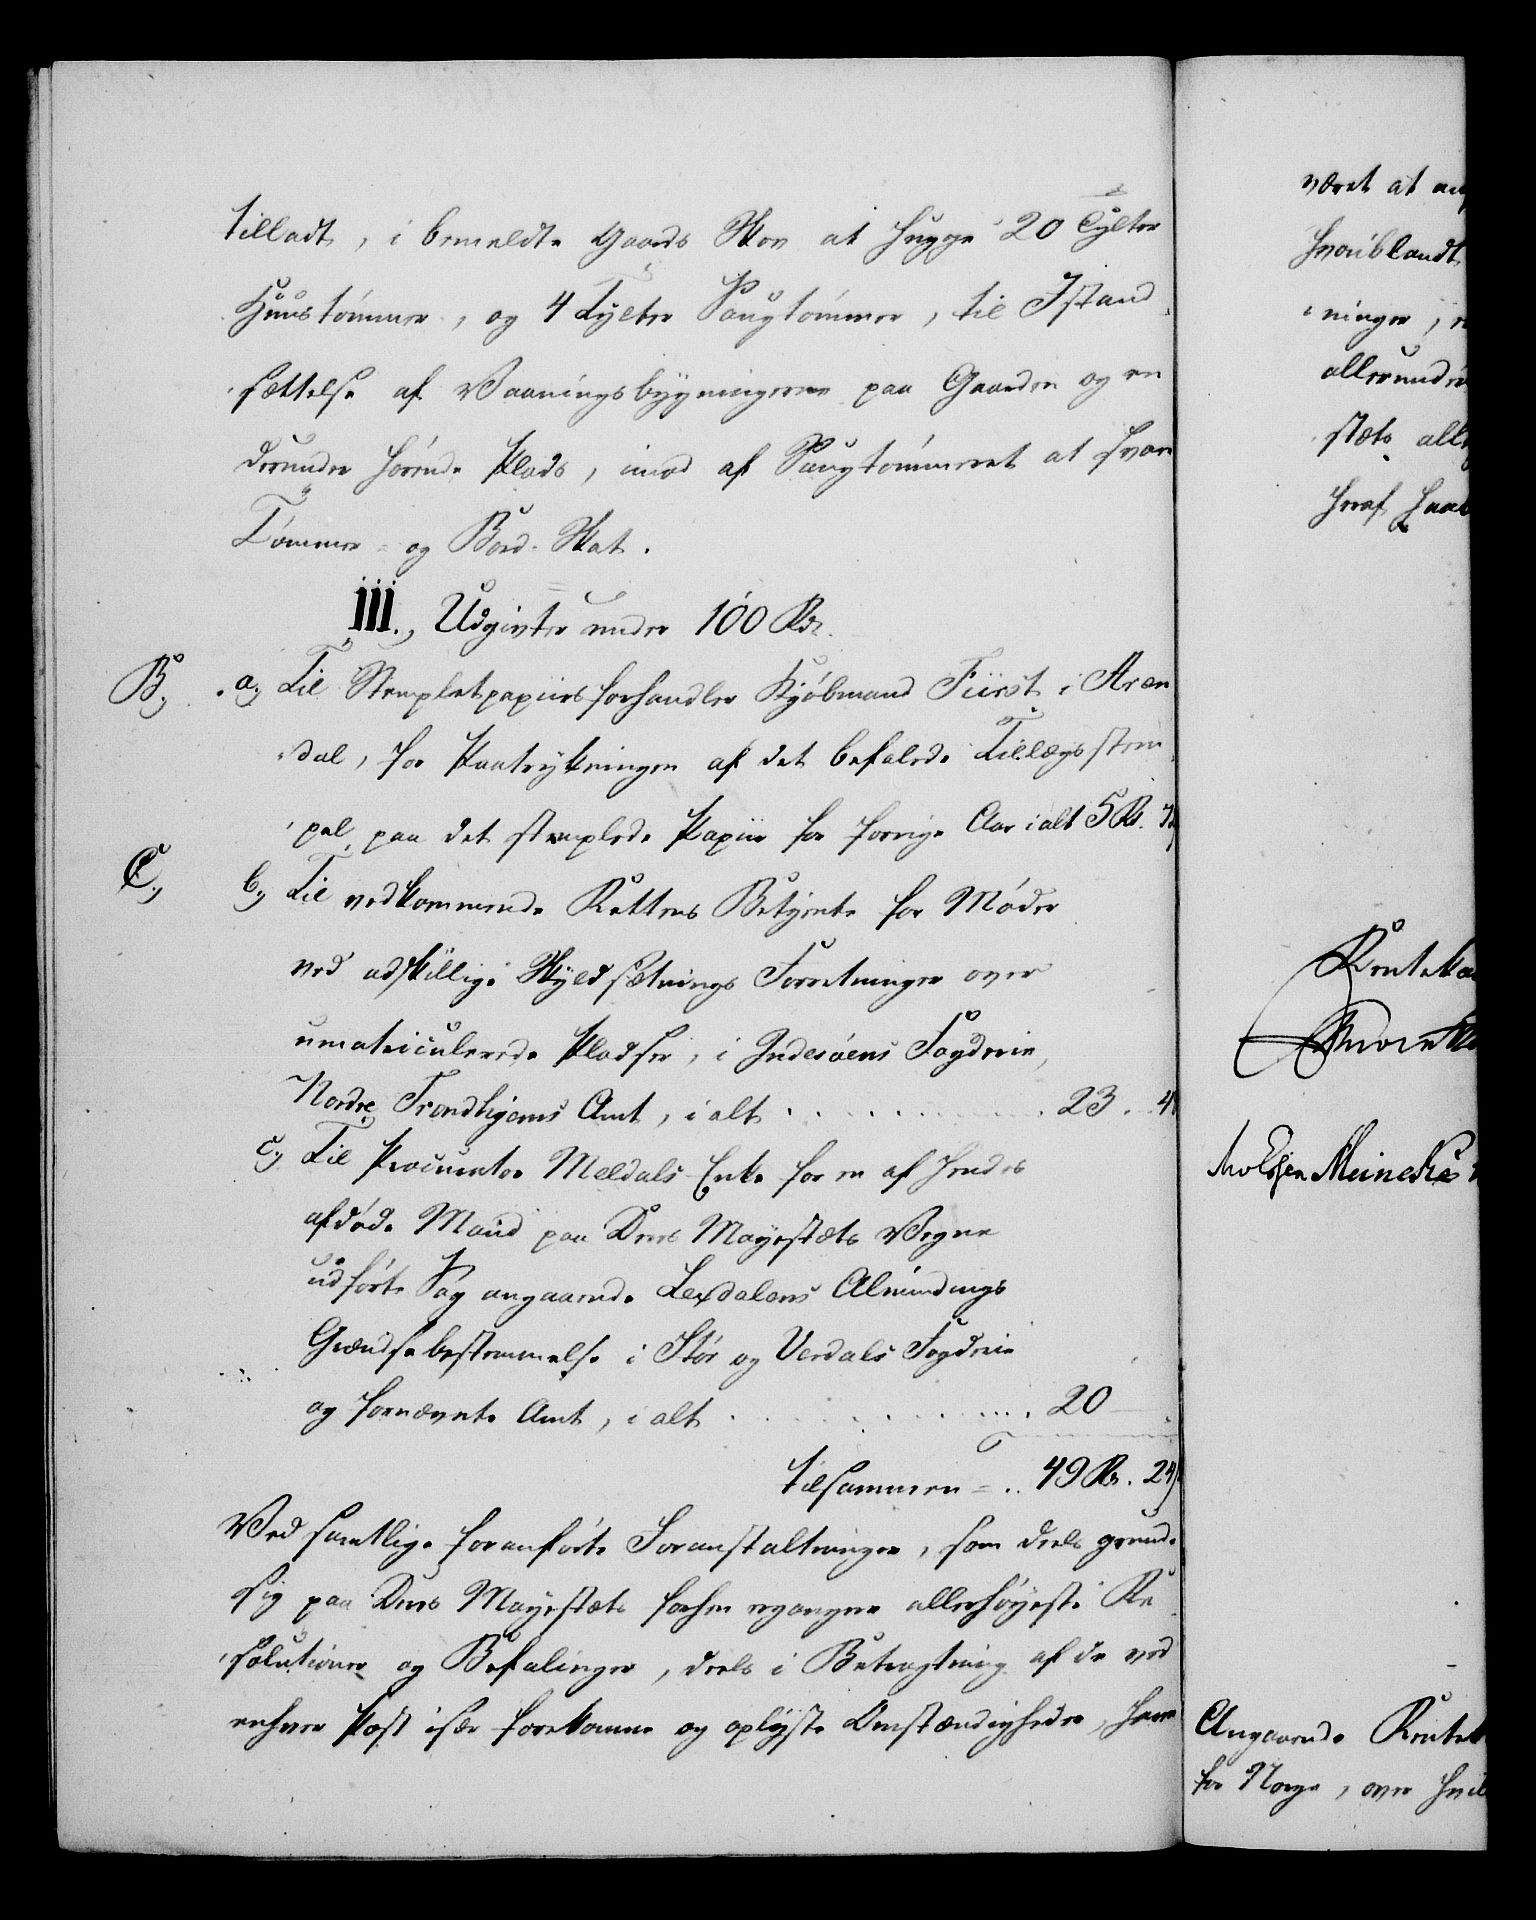 tilladt, i bemeldte Gaards Skov at hugge 20 Tylter
Huustömmer, og 4 Tylter Saugtömmer, til Istand
sættelse af Vaaningsbygningerne paa Gaarden og en
derunder hörende Plads, imod af Saugtömmeret at svare
Tömmer- og Bord-Skat.
III., Udgivter under 100 Rd.
B, a, Til Stempletpapiirs forhandler Kjöbmand Fürst i Aren
dal, for Paatrykningen af det befalede Tillægs stem
pel, paa det stemplede Papiir for forrige Aar ialt 5 Rd.
C, b, Til vedkommende Rettens Betjente for Möder
ved adskillige Skyldsætnings Forretninger over
umatriculerede Pladser, i Inderöens Fogderie,
Nordre Trondhjems Amt, i alt . . . . . . . . 23. 4
c, Til Procurator Meldals Enke for en af hendes
afdöde Mand paa Deres Majestæts Vegne
udfört Sag angaaende Lexdalens Almindings
Grændsebestemmelse i Stör og Verdals Fogderie
og fornævnte Amt, i alt . . . . . . . . 20 —
tilsammen = .. 49 Rd. 24
Ved samtlige foranförte Foranstaltninger, som deels grunde
sig paa Deres Majestæts forhen ergangne allerhöjeste Re
solutioner og Befalinger, deels i Betragtning af de ved
enhver Post især forekomne og oplyste Omstændigheder, have
været at
hvoriblandt
ninger,
allerunder
stæts aller
heraf
Renteka
Knoren
Meinche
Angaaende Rentek
for Norge, over